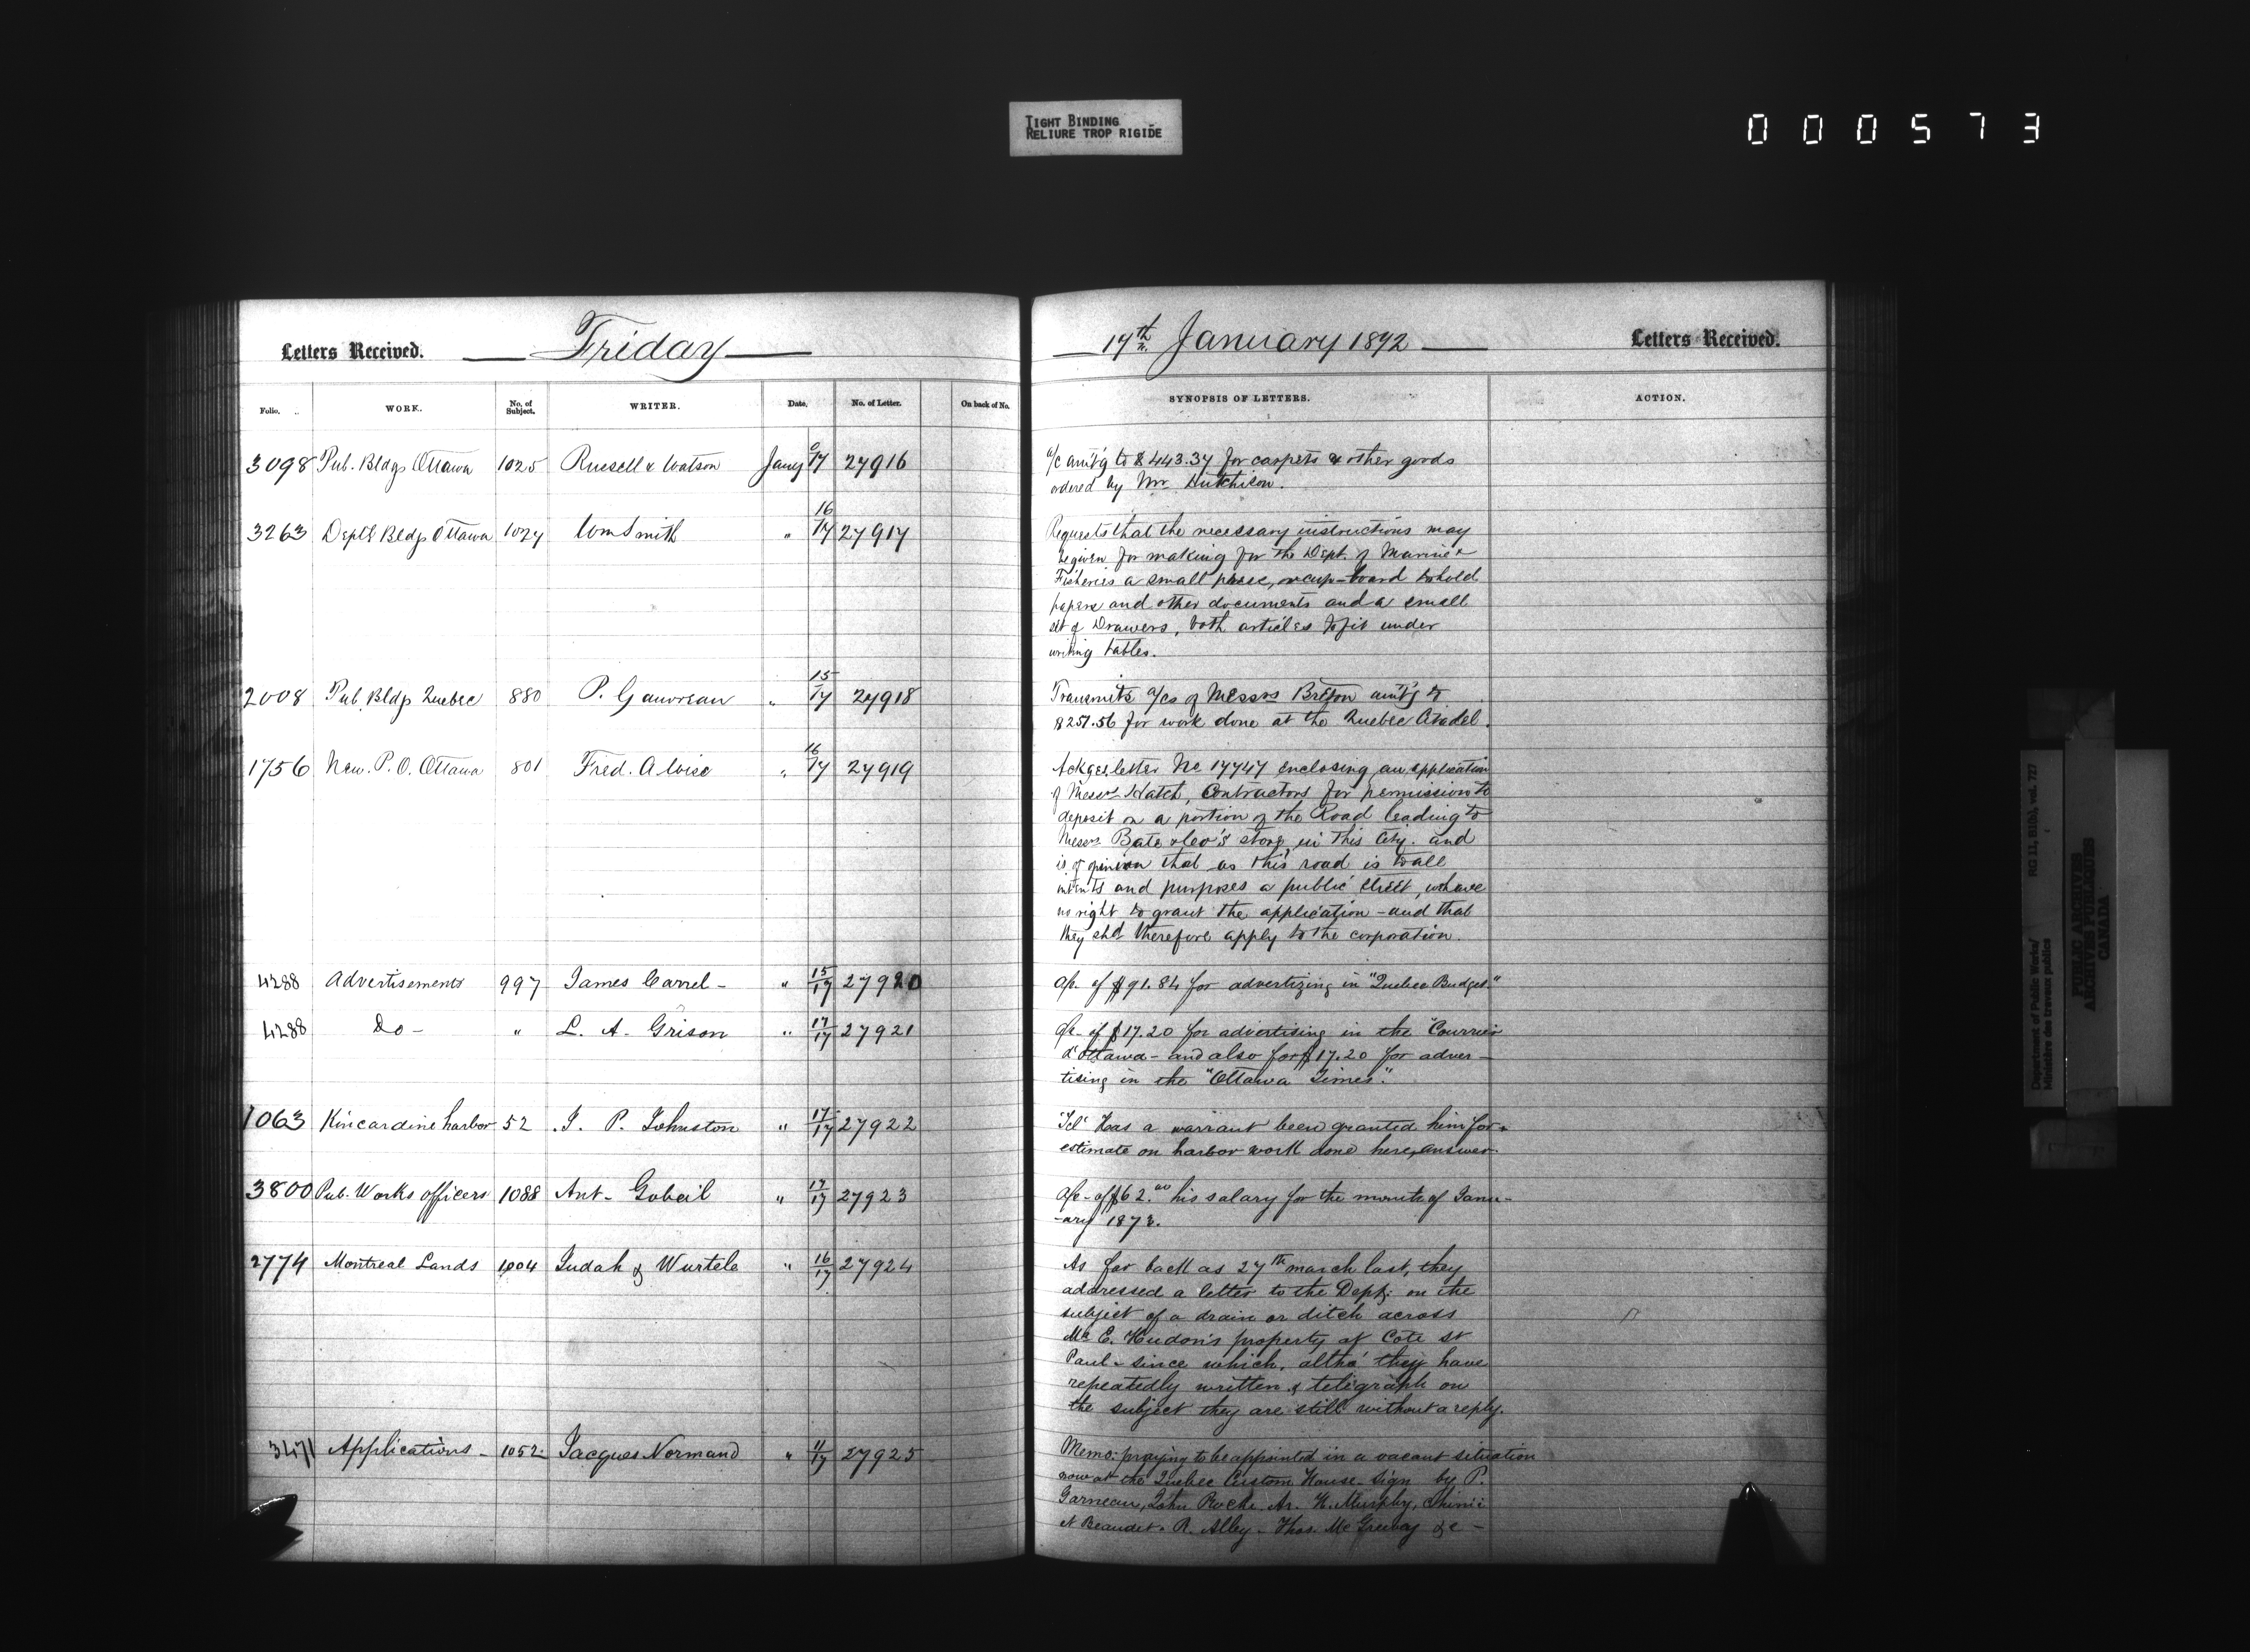 TIGHT BINDING
RELIURE TROP RIGIDE
000573
Letters Received. Friday
17th January 1872 Letters Received.
Folio. WORK. No. of Subject. WRITER. Date. No. of Letter. On back of No. SYNOPSIS OF LETTERS. ACTION.
3098 Pub. Bldgs Ottawa 1025 Russell & Watson Jany 17 27916
a/c amt'g to $443.37 for carpets & other goods
ordered by Mr Hutchison.
3263 Deptl Bldgs Ottawa 1027 Wm Smith " 16/17 27917
Requests that the necessary instructions may
be given for making for the Dept. of Marine &
Fisheries a small press, or cup-board to hold
papers and other documents and a small
set of Drawers, both articles to fit under
writing tables.
2008 Pub. Bldgs Quebec 880 P. Gauvreau " 15/17 27918
Transmits a/cs of Messrs Breton amt'g to
$257.56 for work done at the Quebec Citadel.
1756 New. P.O. Ottawa 801 Fred. A Wise " 16/17 27919
Ackges letter No 17747 enclosing an application
of Messrs Hatch, Contractors for permission to
deposit on a portion of the Road leading to
Messrs Bate & Co's store, in this City. and
is of opinion that as this road is to all
intents and purposes a public street, we have
no right to grant the application - and that
they shd therefore apply to the corporation.
4288 Advertisements 997 James Carrel - " 15/17 27920
a/c - of $91.84 for advertizing in "Quebec Budget."
4288 Do - " L. A. Grison " 17/17 27921
a/c - of $17.20 for advertising in the "Courrier
d'Ottawa - and also for $17.20 for adver-
tising in the "Ottawa Times".
1063 Kincardine harbor 52 J. P. Johnston " 17/17 27922
Tel' Has a warrant been granted him for
estimate on harbor work done here, answer.
3800 Pub. Works officers 1088 Ant - Gobeil " 17/17 27923
a/c - of $62.00 his salary for the month of Janu-
-ary 1873.
2774 Montreal Lands 1004 Judah & Wurtele " 16/17 27924
As far back as 27th march last, they
addressed a letter to the Dept. on the
subject of a drain or ditch across
Mr E. Hudon's property at Cote St
Paul - since which, altho' they have
repeatedly written & telegraph on
the subject they are still without a reply.
3471 Applications - 1052 Jacques Normand " 11/17 27925
Memo: praying to be appointed in a vacant situation
now at the Quebec Custom House - sign by P.
Garneau, John Roche. Ar. H. Murphy, Chinic
et Beaudet. R. Alley - Thos. McGreevy & c -
Department of Public Works/
Ministère des travaux publics
RG 11, B1(b), vol. 727
PUBLIC ARCHIVES
ARCHIVES PUBLIQUES
CANADA